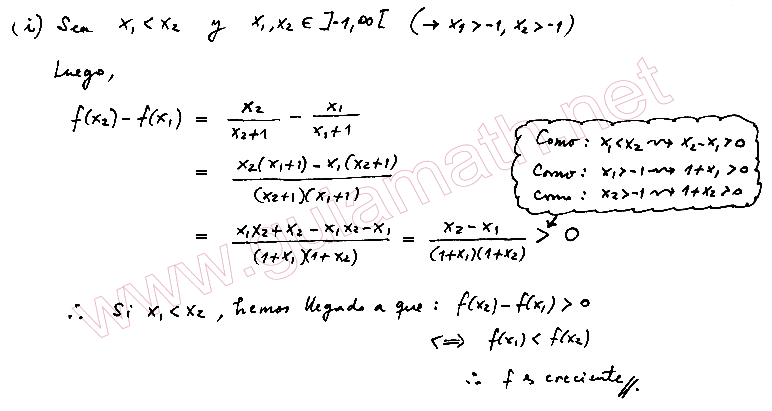 (i) Sea x₁ < x₂ y x₁, x₂ ∈ ]-1, ∞[ (→ x₁ > -1, x₂ > -1)
Luego,
f(x₂) - f(x₁) = x₂/(x₂+1) - x₁/(x₁+1)
= (x₂(x₁+1) - x₁(x₂+1))/((x₂+1)(x₁+1))
= (x₁x₂ + x₂ - x₁x₂ - x₁)/((1+x₁)(1+x₂)) = (x₂ - x₁)/((1+x₁)(1+x₂)) > 0
Como: x₁ < x₂ ⇝ x₂ - x₁ > 0
Como: x₁ > -1 ⇝ 1+x₁ > 0
Como: x₂ > -1 ⇝ 1+x₂ > 0
∴ Si x₁ < x₂, hemos llegado a que: f(x₂) - f(x₁) > 0
⟺ f(x₁) < f(x₂)
∴ f es creciente //.
www.guiamath.net